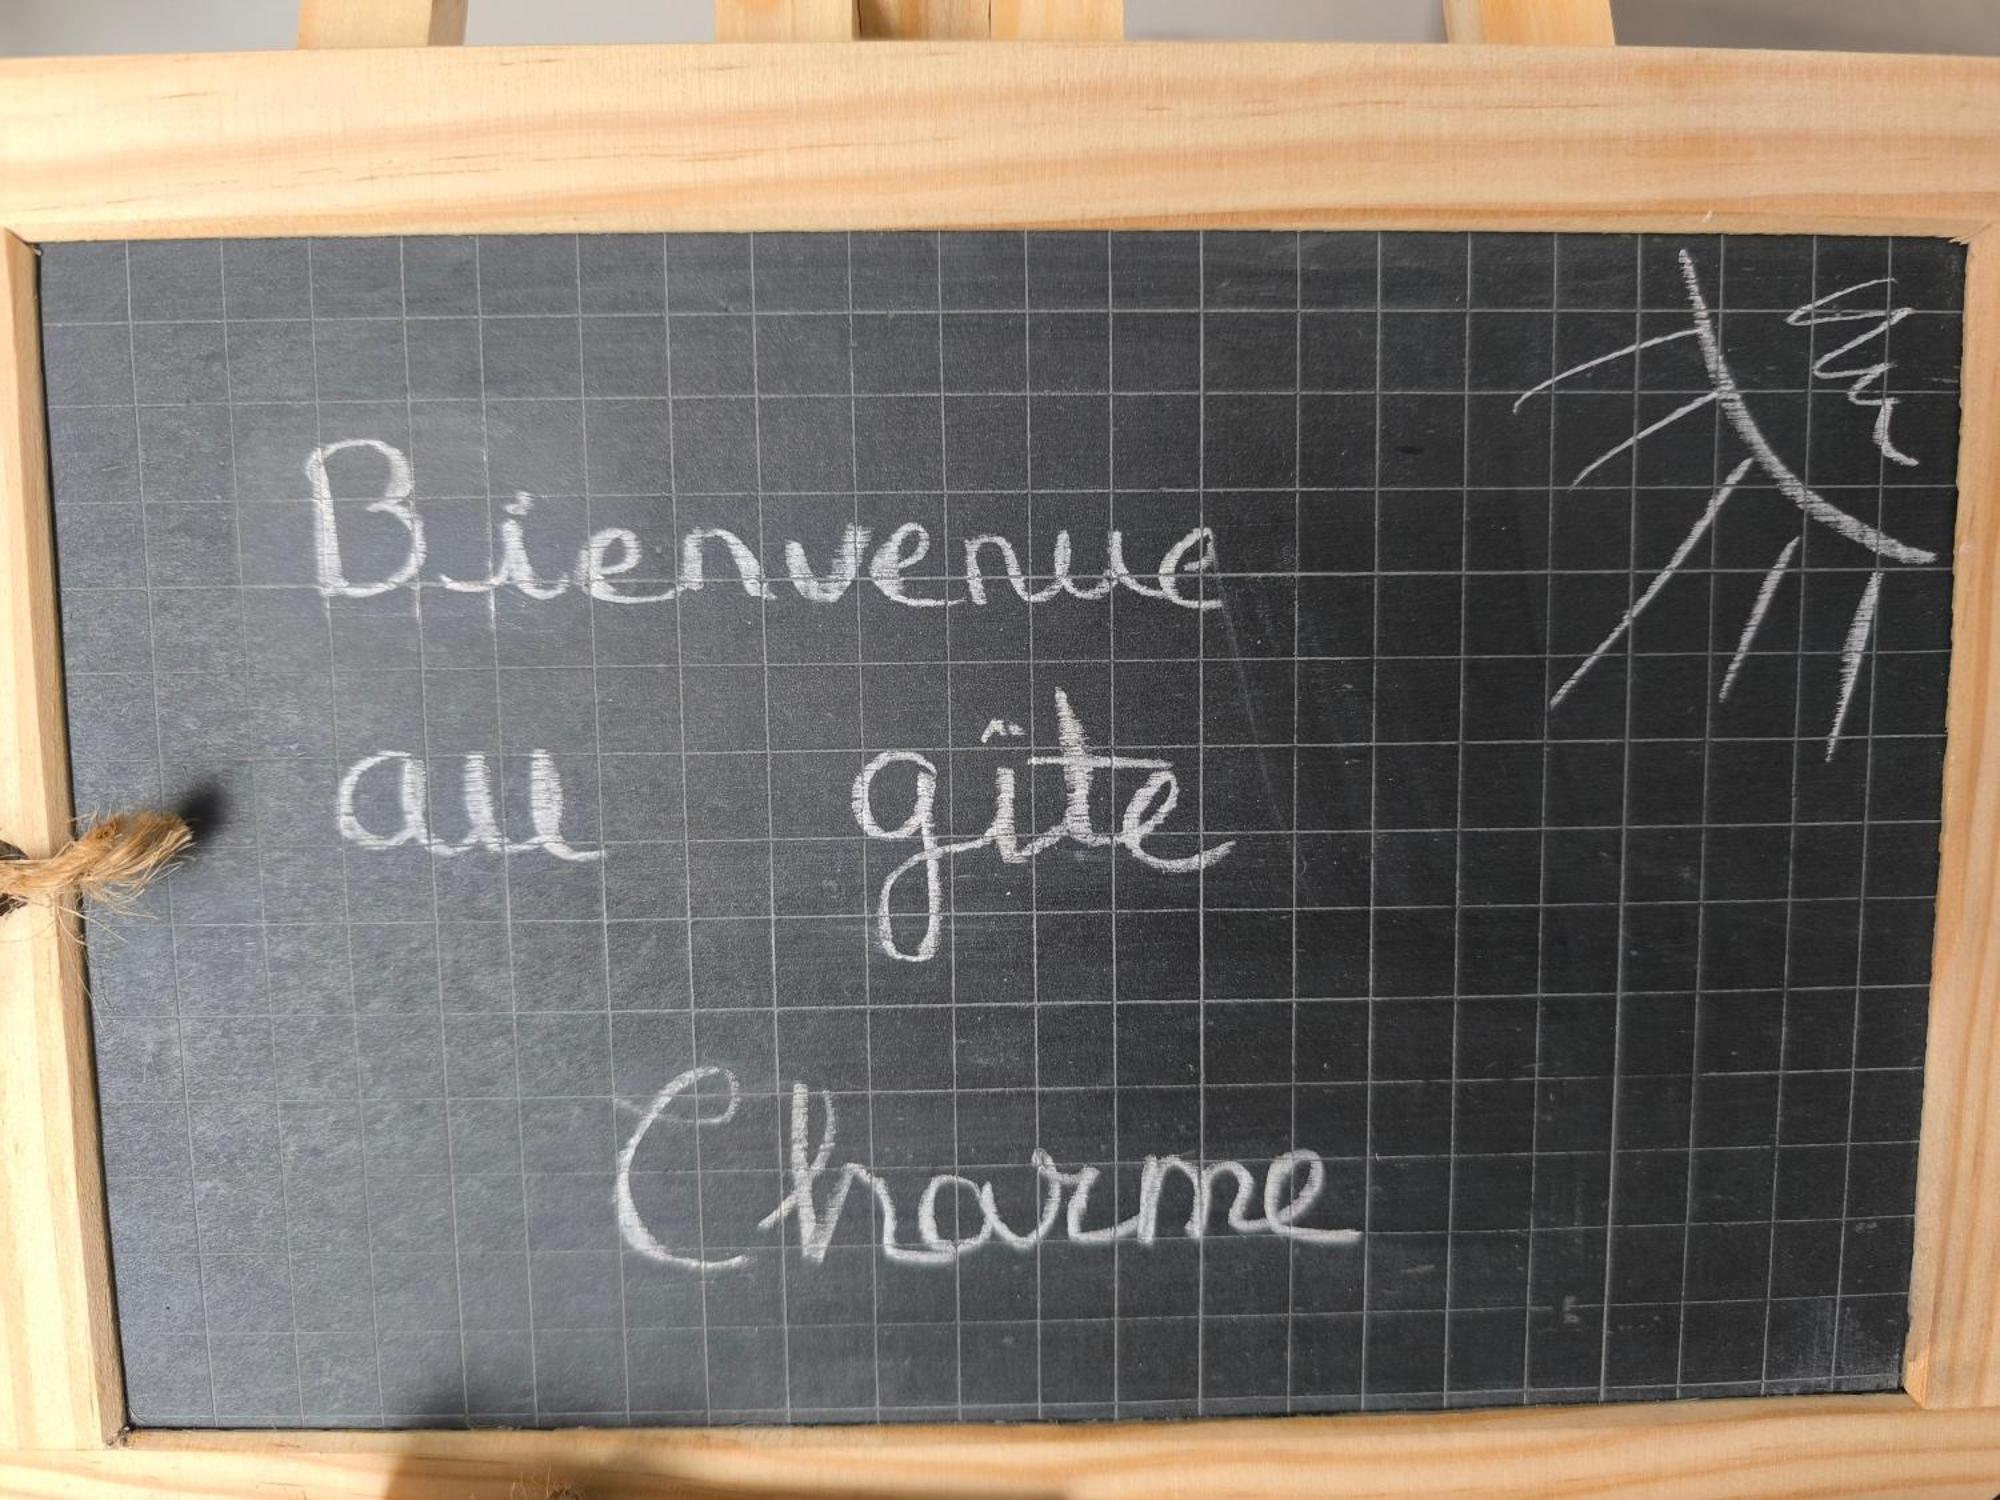 Bienvenue
au gîte
Charme